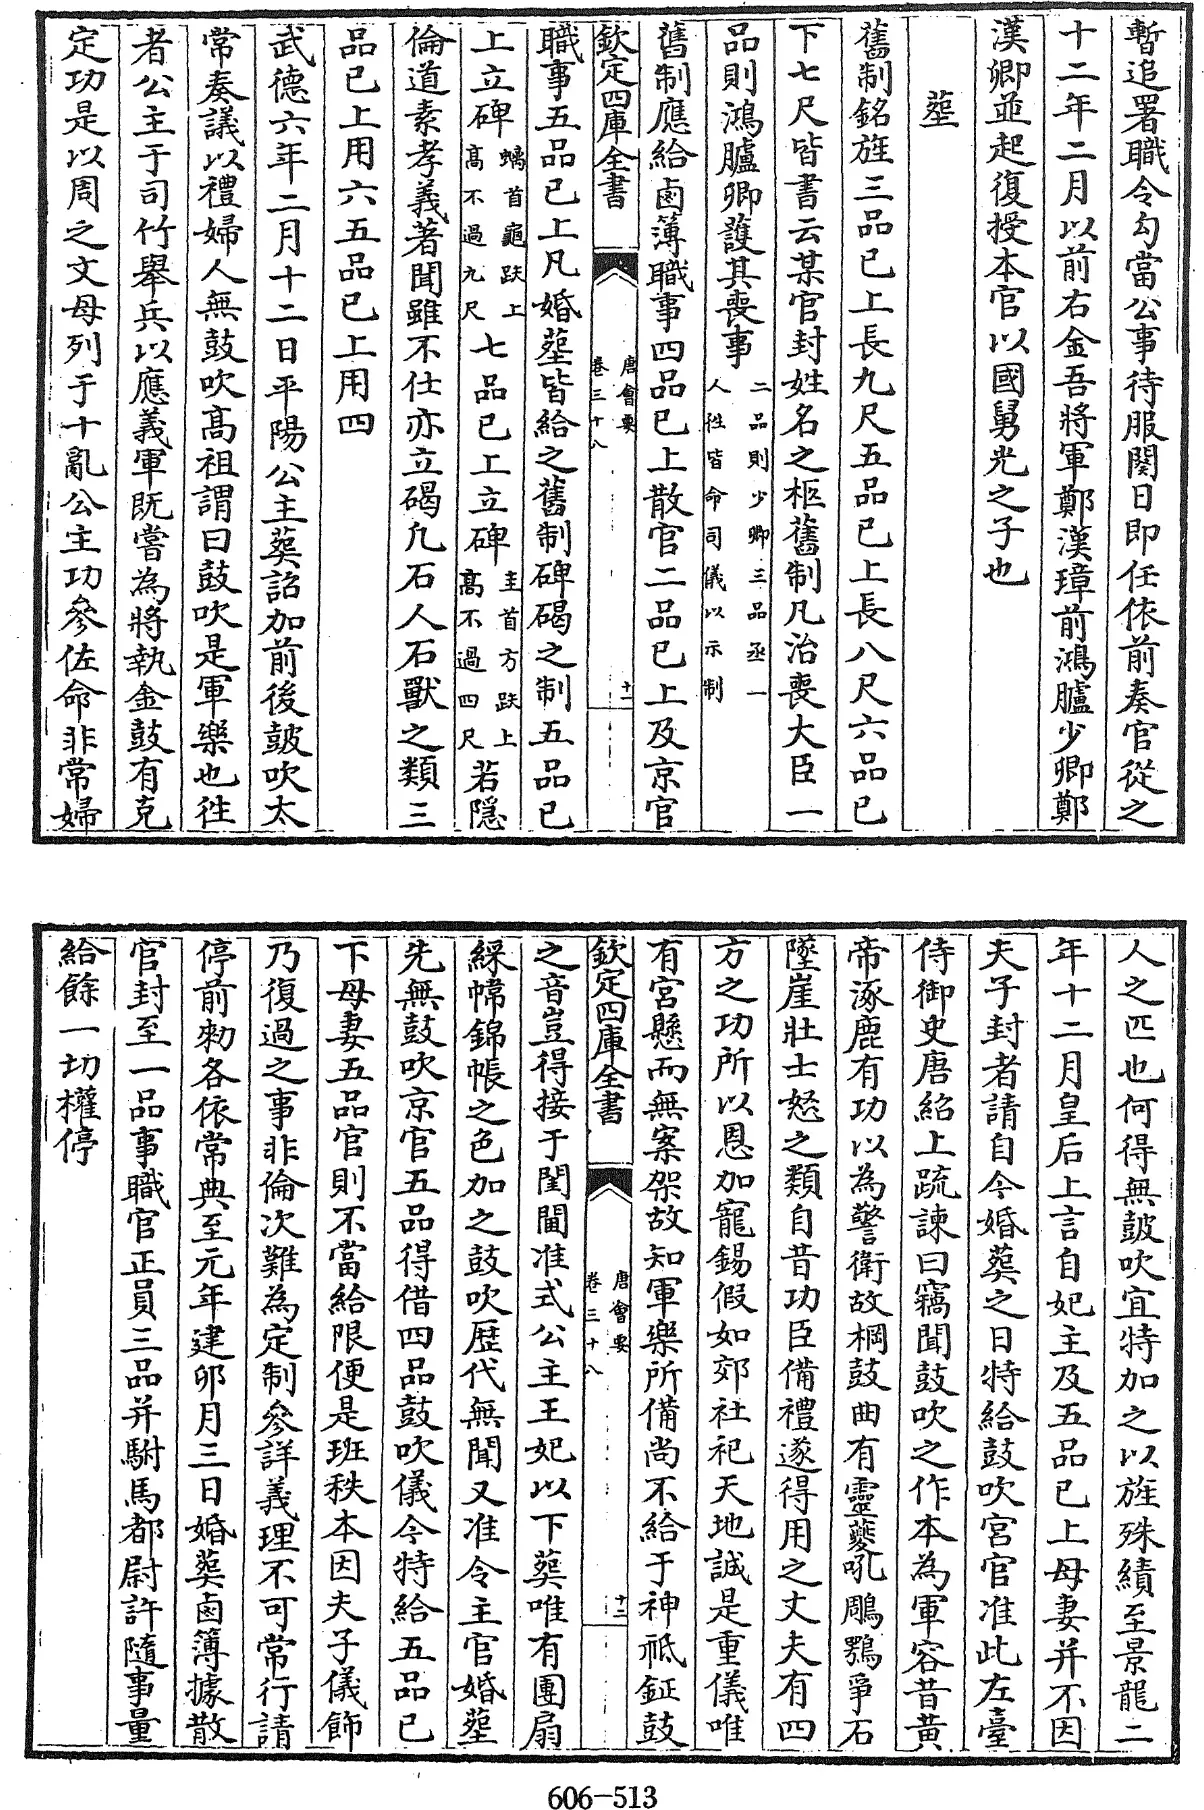 暫追署職令勾當公事待服闋日即任依前奏官從之
十二年二月以前右金吾將軍鄭漢璋前鴻臚少卿鄭
漢卿並起復授本官以國舅光之子也
葬
舊制銘旌三品已上長九尺五品已上長八尺六品已
下七尺皆書云某官封姓名之柩舊制凡治喪大臣一
品則鴻臚卿護其喪事二品則少卿三品丞一人徃皆命司儀以示制
舊制應給鹵簿職事四品已上散官二品已上及京官
欽定四庫全書
唐會要
卷三十八
十一
職事五品已上凡婚葬皆給之舊制碑碣之制五品已
上立碑螭首龜趺上高不過九尺七品已上立碑圭首方趺上高不過四尺若隱
倫道素孝義著聞雖不仕亦立碣凡石人石獸之類三
品已上用六五品已上用四
武德六年二月十二日平陽公主葬詔加前後鼓吹太
常奏議以禮婦人無鼓吹高祖謂曰鼓吹是軍樂也徃
者公主于司竹舉兵以應義軍既嘗為將執金鼓有克
定功是以周之文母列于十亂公主功參佐命非常婦
人之匹也何得無鼓吹宜特加之以旌殊績至景龍二
年十二月皇后上言自妃主及五品已上母妻并不因
夫子封者請自今婚葬之日特給鼓吹宮官准此左臺
侍御史唐紹上疏諫曰竊聞鼓吹之作本為軍容昔黃
帝涿鹿有功以為警衛故棡鼓曲有靈夔吼鵰鶚爭石
墜崖壯士怒之類自昔功臣備禮遂得用之丈夫有四
方之功所以恩加寵錫假如郊社祀天地誠是重儀唯
有宮懸而無案架故知軍樂所備尚不給于神祗鉦鼓
欽定四庫全書
唐會要
卷三十八
十二
之音豈得接于閨閫准式公主王妃以下葬唯有團扇
綵幃錦帳之色加之鼓吹歷代無聞又准令主官婚葬
先無鼓吹京官五品得借四品鼓吹儀令特給五品已
下母妻五品官則不當給限便是班秩本因夫子儀飾
乃復過之事非倫次難為定制參詳義理不可常行請
停前勅各依常典至元年建卯月三日婚葬鹵簿據散
官封至一品事職官正員三品并駙馬都尉許隨事量
給餘一切權停
606-513